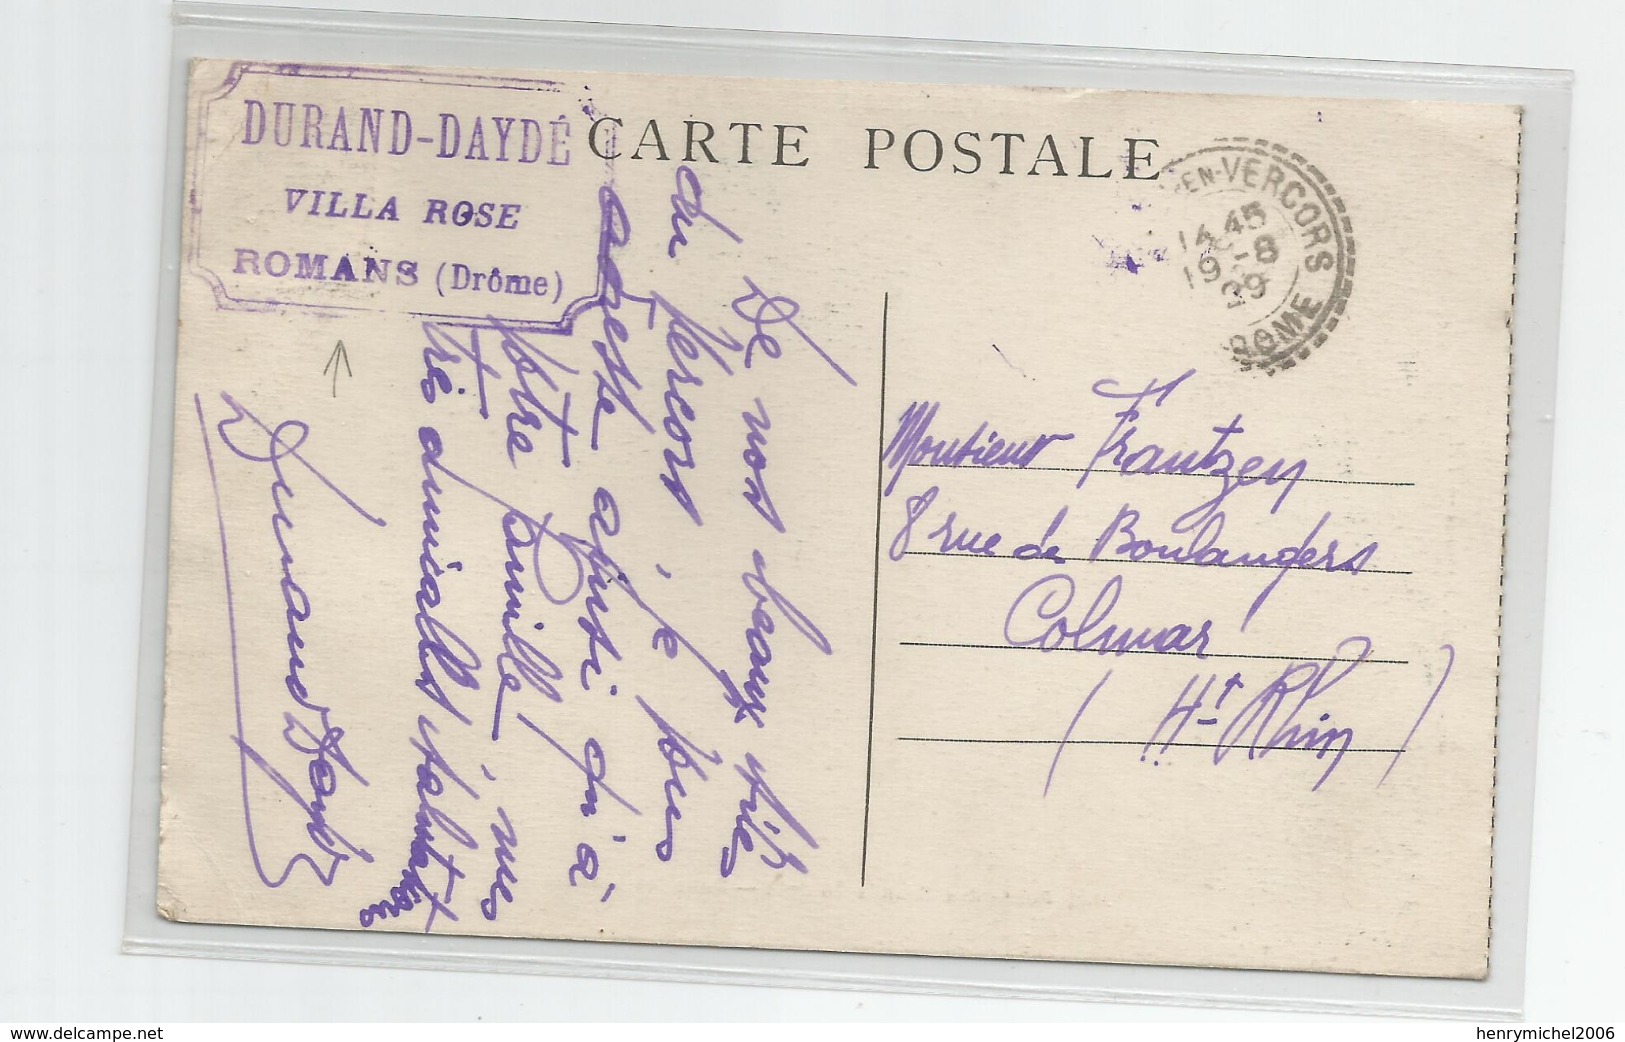 DURAND-DAYDÉ
VILLA ROSE
ROMANS (Drôme)
CARTE POSTALE
EN-VERCORS
14 45
-8
19 39
ROME
De nos beaux sites
du Vercors, je vous
adresse ainsi qu'à
Vôtre famille, mes
très amicales salutations
Durand Daydé
Monsieur Frantzen
8 rue de Boulangers
Colmar
(Ht Rhin)
www.delcampe.net
henrymichel2006